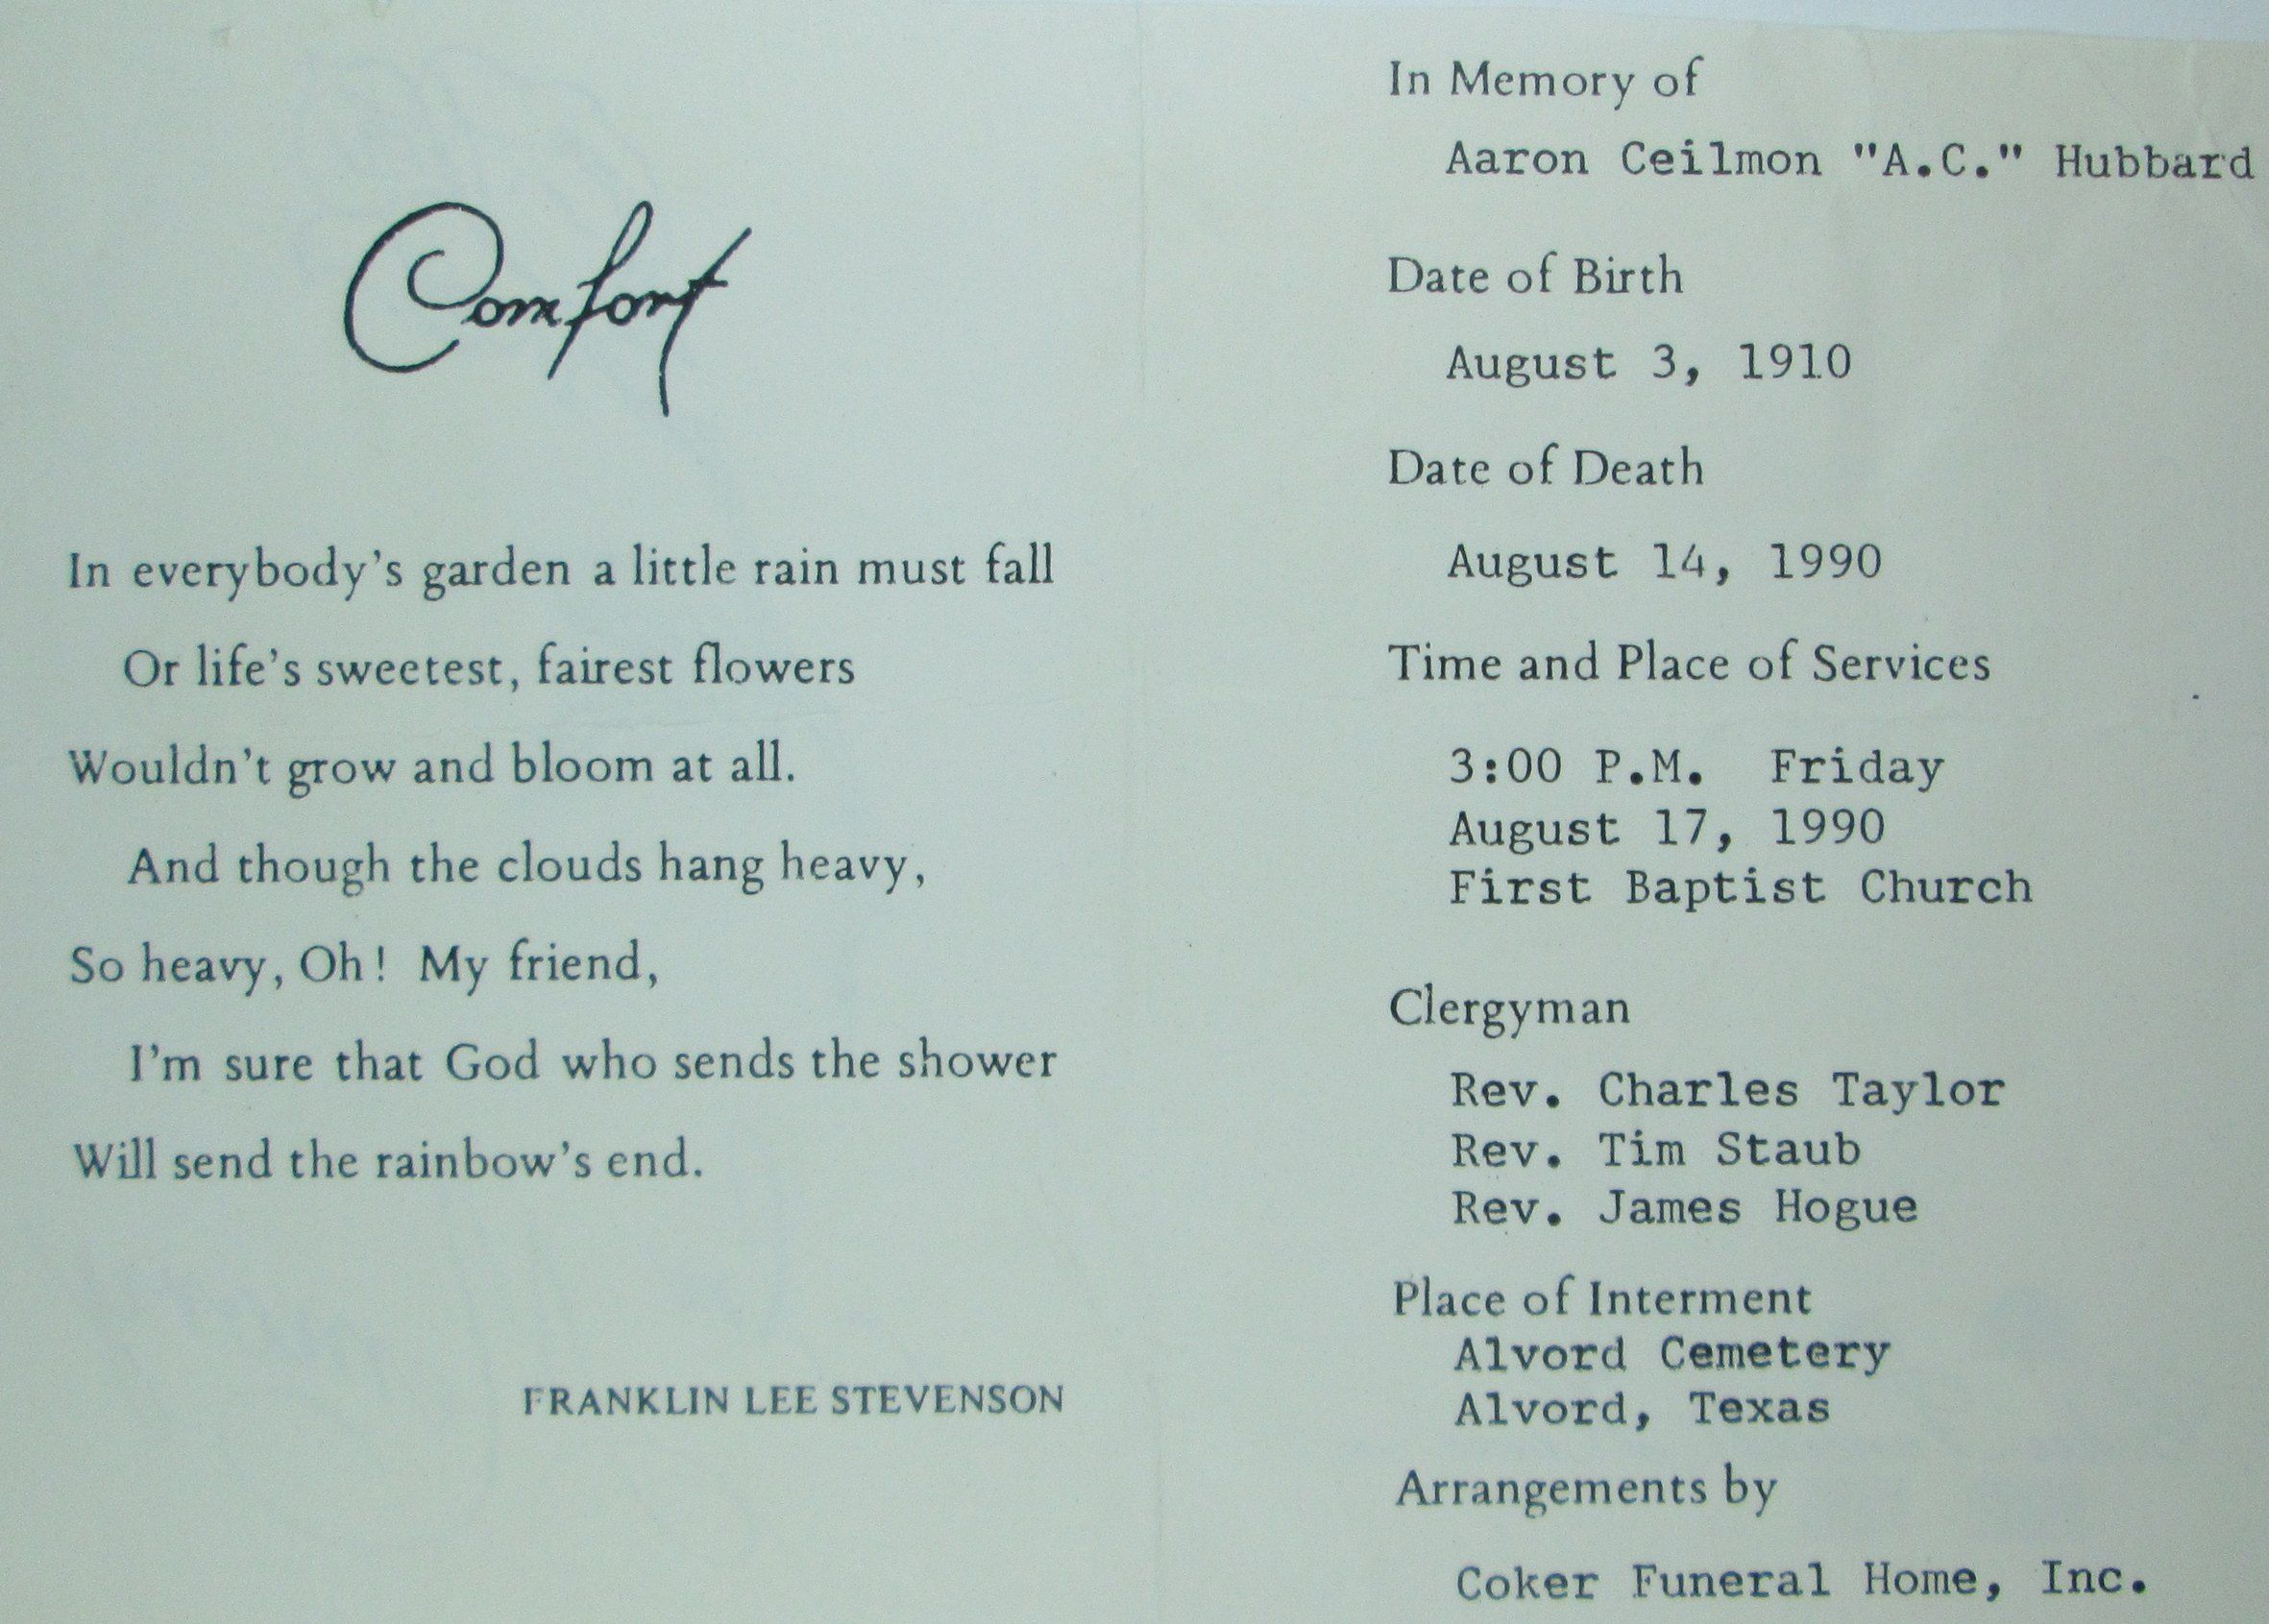 Comfort
In everybody's garden a little rain must fall
Or life's sweetest, fairest flowers
Wouldn't grow and bloom at all.
And though the clouds hang heavy,
So heavy, Oh! My friend,
I'm sure that God who sends the shower
Will send the rainbow's end.
FRANKLIN LEE STEVENSON
In Memory of
Aaron Ceilmon "A.C." Hubbard
Date of Birth
August 3, 1910
Date of Death
August 14, 1990
Time and Place of Services
3:00 P.M. Friday
August 17, 1990
First Baptist Church
Clergyman
Rev. Charles Taylor
Rev. Tim Staub
Rev. James Hogue
Place of Interment
Alvord Cemetery
Alvord, Texas
Arrangements by
Coker Funeral Home, Inc.